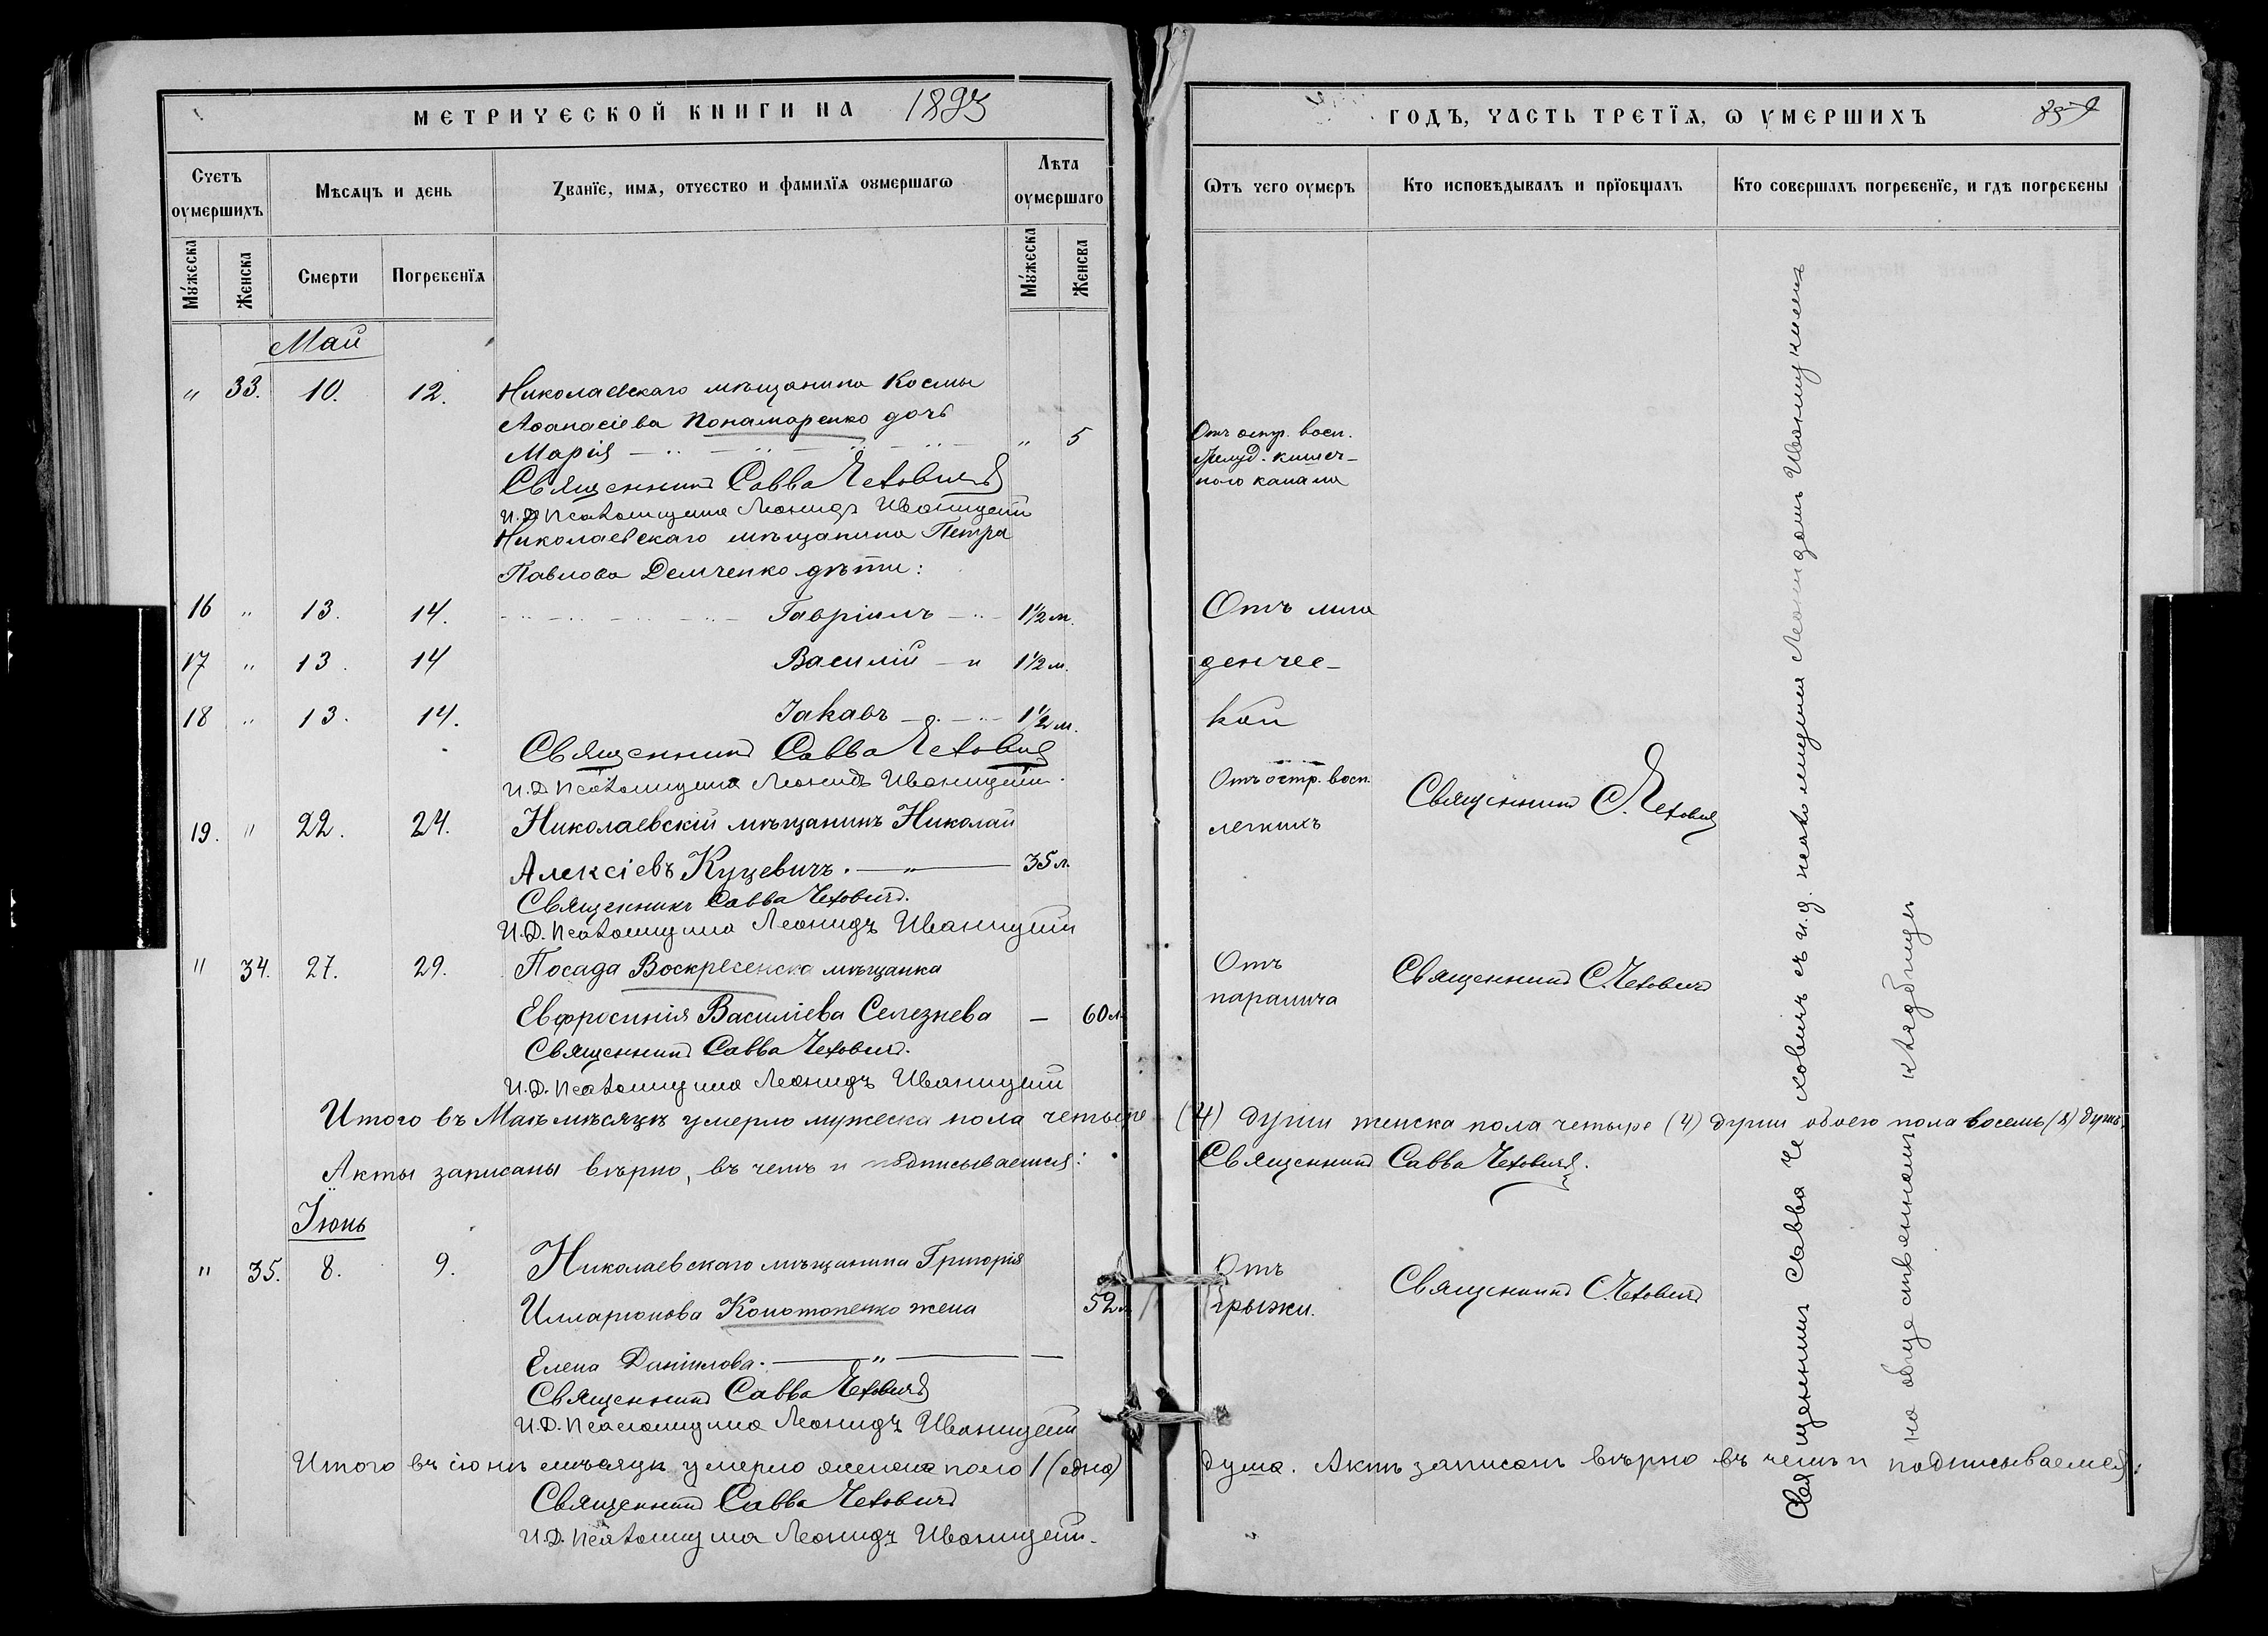 МЕТРИЧЕСКОЙ КНИГИ НА 1893
Счетъ оумершихъ
Мѣсяцъ и день
Званїе, имя, отчество и фамилїя оумершагѡ
Лѣта оумершаго
Мужеска
Женска
Смерти
Погребенїя
Мужеска
Женска
Май
" 33. 10. 12. Николаевскаго мѣщанина Космы
Аѳанасіева Пономаренко дочь
Марія " 5
Священникъ Савва Чеховичъ
И.Д. Псаломщика Леонидъ Иваницкій
Николаевскаго мѣщанина Петра
Павлова Демченко дѣти:
16 " 13. 14. Гавріилъ 1½ м.
17 " 13. 14 Василій – и 1½ м.
18 " 13. 14. Іаковъ 1½ м.
Священникъ Савва Чеховичъ
И.Д. Псаломщика Леонидъ Иваницкій.
19. " 22. 24. Николаевскій мѣщанинъ Николай
Алексіевъ Куцевичъ. 35 л.
Священникъ Савва Чеховичъ.
И.Д. Псаломщика Леонидъ Иваницкій
" 34. 27. 29. Посада Воскресенска мѣщанка
Евфросинія Василіева Селезнева – 60 л.
Священникъ Савва Чеховичъ.
И.Д. Псаломщика Леонидъ Иваницкій
Итого въ Маѣ мѣсяцѣ умерло мужеска пола четыре
Акты записаны вѣрно, въ чемъ и подписываемся:
Іюнь
" 35. 8. 9. Николаевскаго мѣщанина Григорія
Илларіонова Конотопенко жена 52 л.
Елена Даніилова.
Священникъ Савва Чеховичъ
И.Д. Псаломщика Леонидъ Иваницкій
Итого въ іюнѣ мѣсяцѣ умерло женска пола 1 (одна)
Священникъ Савва Чеховичъ
И.Д. Псаломщика Леонидъ Иваницкій.
ГОДЪ, ЧАСТЬ ТРЕТЇЯ, Ѡ УМЕРШИХЪ
Ѿтъ чего оумеръ
Кто исповѣдывалъ и прїобщалъ
Кто совершалъ погребенїе, и гдѣ погребены
Отъ остр. восп.
желуд. кишеч-
ного канала
Отъ мла
денчес-
кой
Отъ остр. восп.
легкихъ
Священникъ С. Чеховичъ
Отъ
паралича
Священникъ С. Чеховичъ
(4) души женска пола четыре (4) души обоего пола восемь (8) душъ.
Священникъ Савва Чеховичъ.
Отъ
грыжи.
Священникъ С. Чеховичъ
душа. Актъ записанъ вѣрно въ чемъ и подписываемся:
Священникъ Савва Чеховичъ съ и.д. псаломщика Леонидомъ Иваницкимъ
на общественномъ кладбищѣ